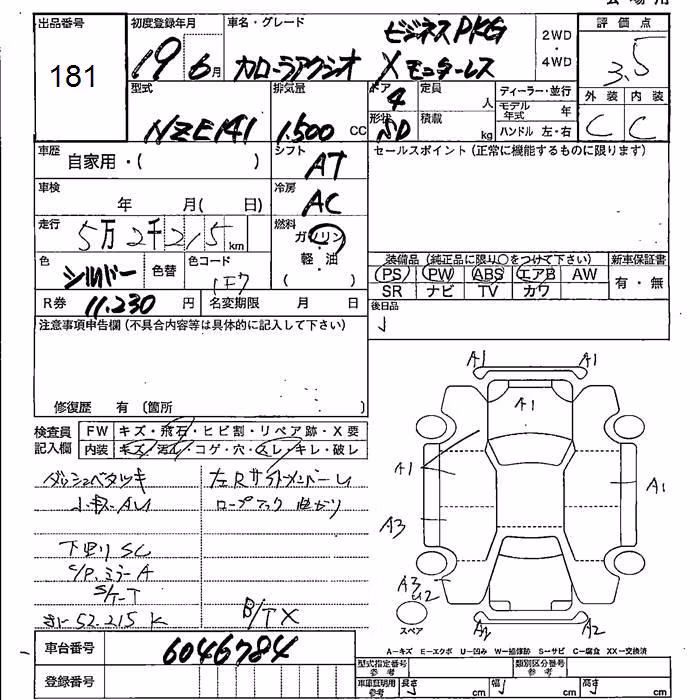 出品番号 初度登録年月 車名・グレード ビジネスPKG 2WD・4WD 評価点
181 19 6月 カローラアクシオ Xモニターレス 3.5
型式 排気量 ドア 4 定員 人 ディーラー・並行 外装 内装
NZE141 1.500 CC 形状 SD 積載 kg モデル年式 年 C C
ハンドル 左・右
車歴 自家用・( ) シフト AT セールスポイント(正常に機能するものに限ります)
車検 年 月( 日) 冷房 AC
走行 5万2千215km 燃料 ガソリン・軽・油 ( )
色 シルバー 色替 色コード 1F7
装備品(純正品に限り○をつけて下さい) 新車保証書
PS PW ABS エアB AW 有・無
SR ナビ TV カワ
R券 11.230 円 名変期限 月 日 後日品
注意事項申告欄(不具合内容等は具体的に記入して下さい)
修復歴 有 (箇所
検査員記入欄 FW キズ・飛石・ヒビ割・リペア跡・X要
内装 キズ・汚レ・コゲ・穴・スレ・キレ・破レ
ダッシュベタツキ
小キズAU
下回リSC
C/P.ミラーA
キー 52.215K B/TX
A1 A1
A1
A1 A1
A3
A3 U2
A2 A2
スペア
A−キズ E−エクボ U−凹み W−補修跡 S−サビ C−腐食 XX−交換済
車台番号 6046784
登録番号
型式指定番号 参考 類別区分番号 参考
車庫証明用 参考 長さ cm 幅 cm 高さ cm